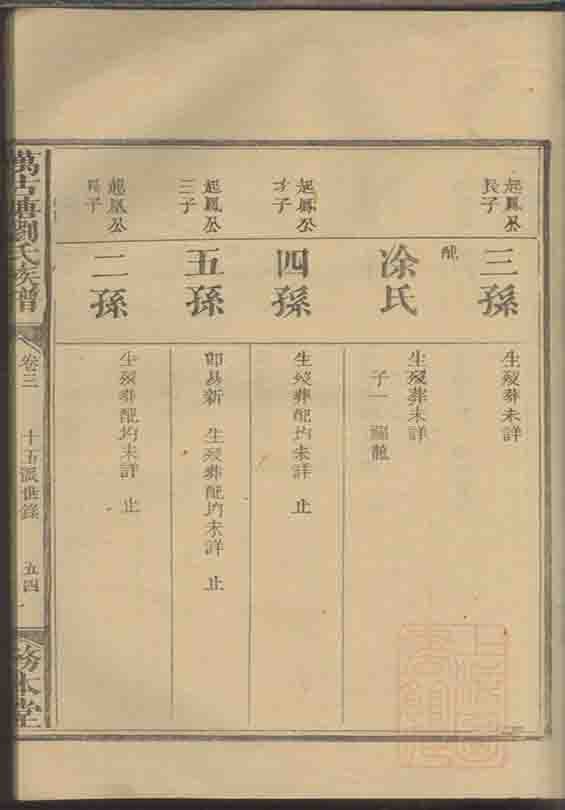 起鳳公
長子
三孫
生歿葬未詳
配
凃氏
生歿葬未詳
子一 福龍
起鳳公
次子
四孫
生歿葬配均未詳 止
起鳳公
三子
五孫
即易新 生歿葬配均未詳 止
龍鳳公
長子
二孫
生歿葬配均未詳 止
萬古塘劉氏族譜
卷三
十五派世錄
五四
務本堂